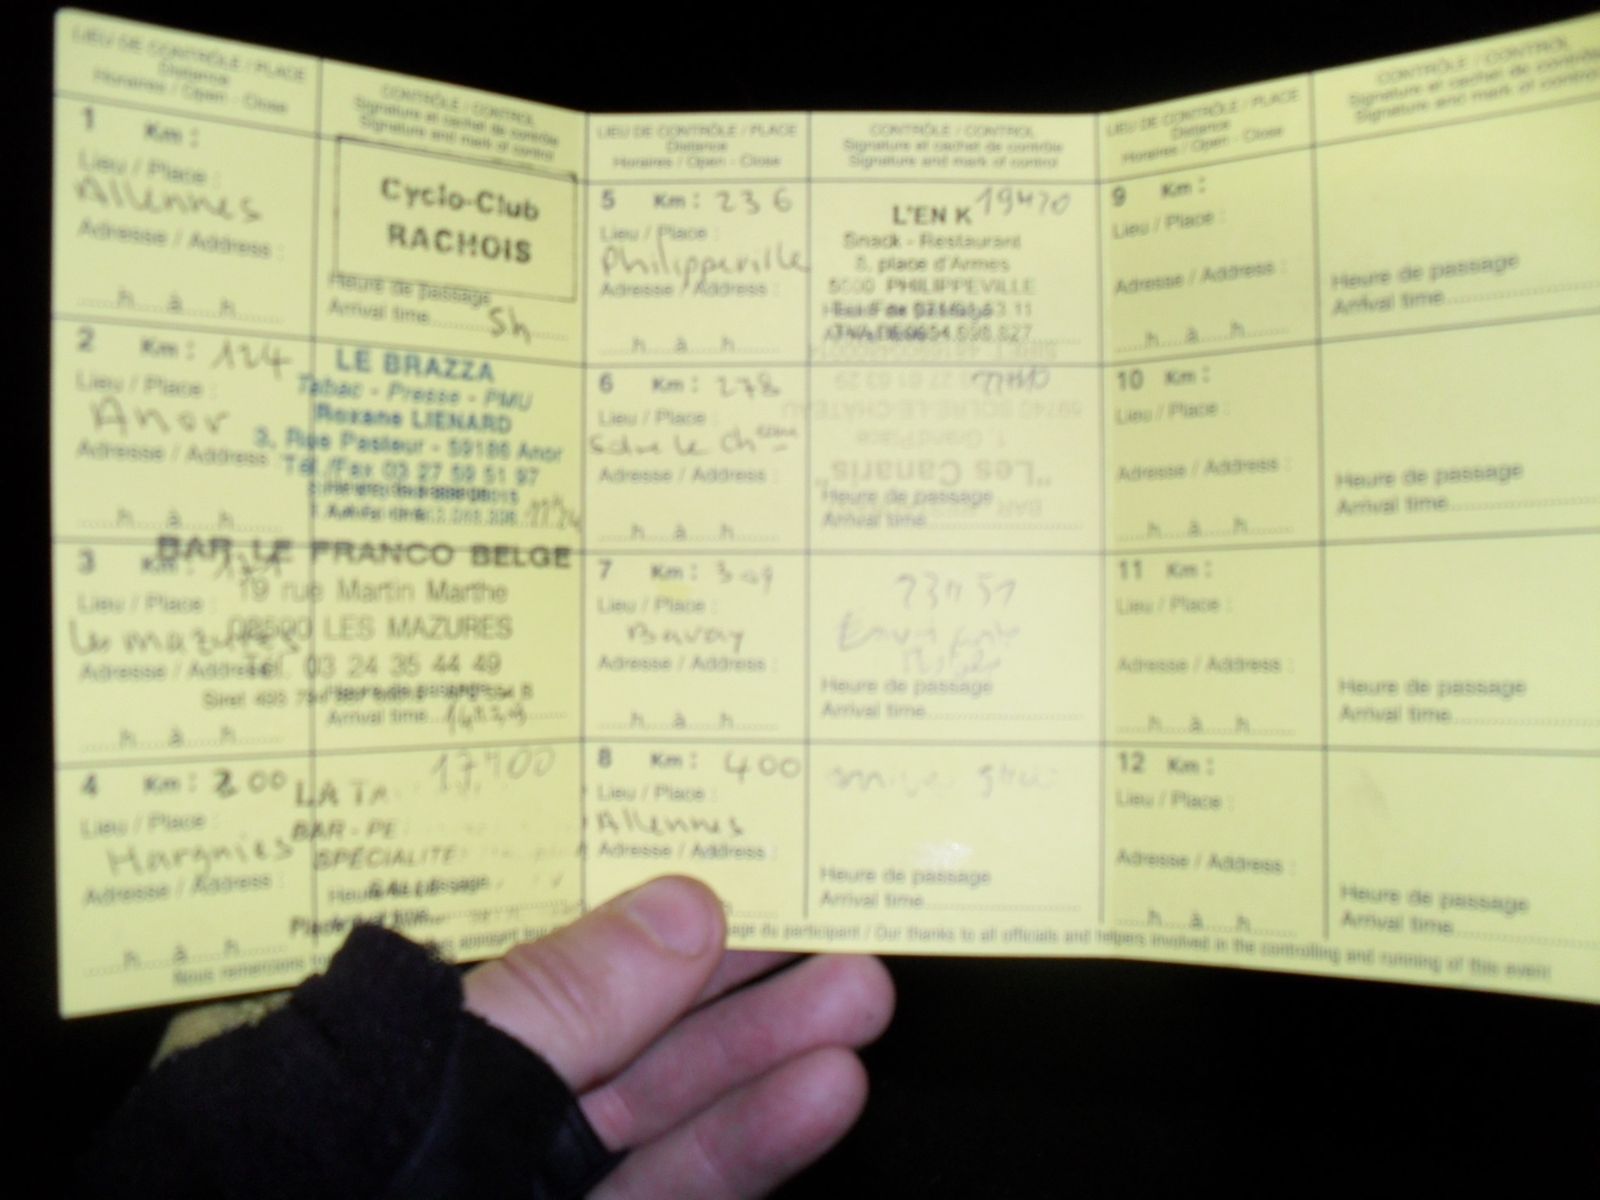 LIEU DE CONTRÔLE / PLACE
Distance
Horaires / Open - Close
CONTRÔLE / CONTROL
Signature et cachet de contrôle
Signature and mark of control
1 Km :
Lieu / Place :
Allennes
Adresse / Address :
h à h
Cyclo-Club
RACHOIS
Heure de passage
Arrival time 5h
2 Km : 124
Lieu / Place :
Anor
Adresse / Address :
h à h
LE BRAZZA
Tabac - Presse - PMU
Roxane LIENARD
3, Rue Pasteur - 59186 Anor
Tél./Fax 03 27 59 51 97
3 Km :
Lieu / Place :
Les mazures
Adresse / Address
h à h
BAR LE FRANCO BELGE
19 rue Martin Marthe
08500 LES MAZURES
Tél. 03 24 35 44 49
Siret
Heure de passage
Arrival time
4 Km : 200
Lieu / Place :
Hargnies
Adresse / Address :
h à h
17h00
LA TA
BAR - PE
SPÉCIALITÉ
Nous remercions
LIEU DE CONTRÔLE / PLACE
Distance
Horaires / Open - Close
CONTRÔLE / CONTROL
Signature et cachet de contrôle
Signature and mark of control
5 Km : 236
Lieu / Place :
Philippeville
Adresse / Address :
h à h
L'EN K
Snack - Restaurant
8, place d'Armes
5600 PHILIPPEVILLE
6 Km : 278
Lieu / Place :
Adresse / Address :
h à h
59740 SOLRE-LE-CHATEAU
1 Grand'Place
"Les Canaris"
BAR
Heure de passage
Arrival time
7 Km : 309
Lieu / Place :
Bavay
Adresse / Address :
h à h
23h51
Heure de passage
Arrival time
8 Km : 400
Lieu / Place :
Allennes
Adresse / Address :
h
Heure de passage
Arrival time
du participant / Our thanks to all officials and helpers involved in the controlling and running of this event
LIEU DE CONTRÔLE / PLACE
Distance
Horaires / Open - Close
CONTRÔLE / CONTROL
Signature et cachet de contrôle
Signature and mark of control
9 Km :
Lieu / Place :
Adresse / Address :
h à h
Heure de passage
Arrival time
10 Km :
Lieu / Place :
Adresse / Address :
h à h
Heure de passage
Arrival time
11 Km :
Lieu / Place :
Adresse / Address :
h à h
Heure de passage
Arrival time
12 Km :
Lieu / Place :
Adresse / Address :
h à h
Heure de passage
Arrival time